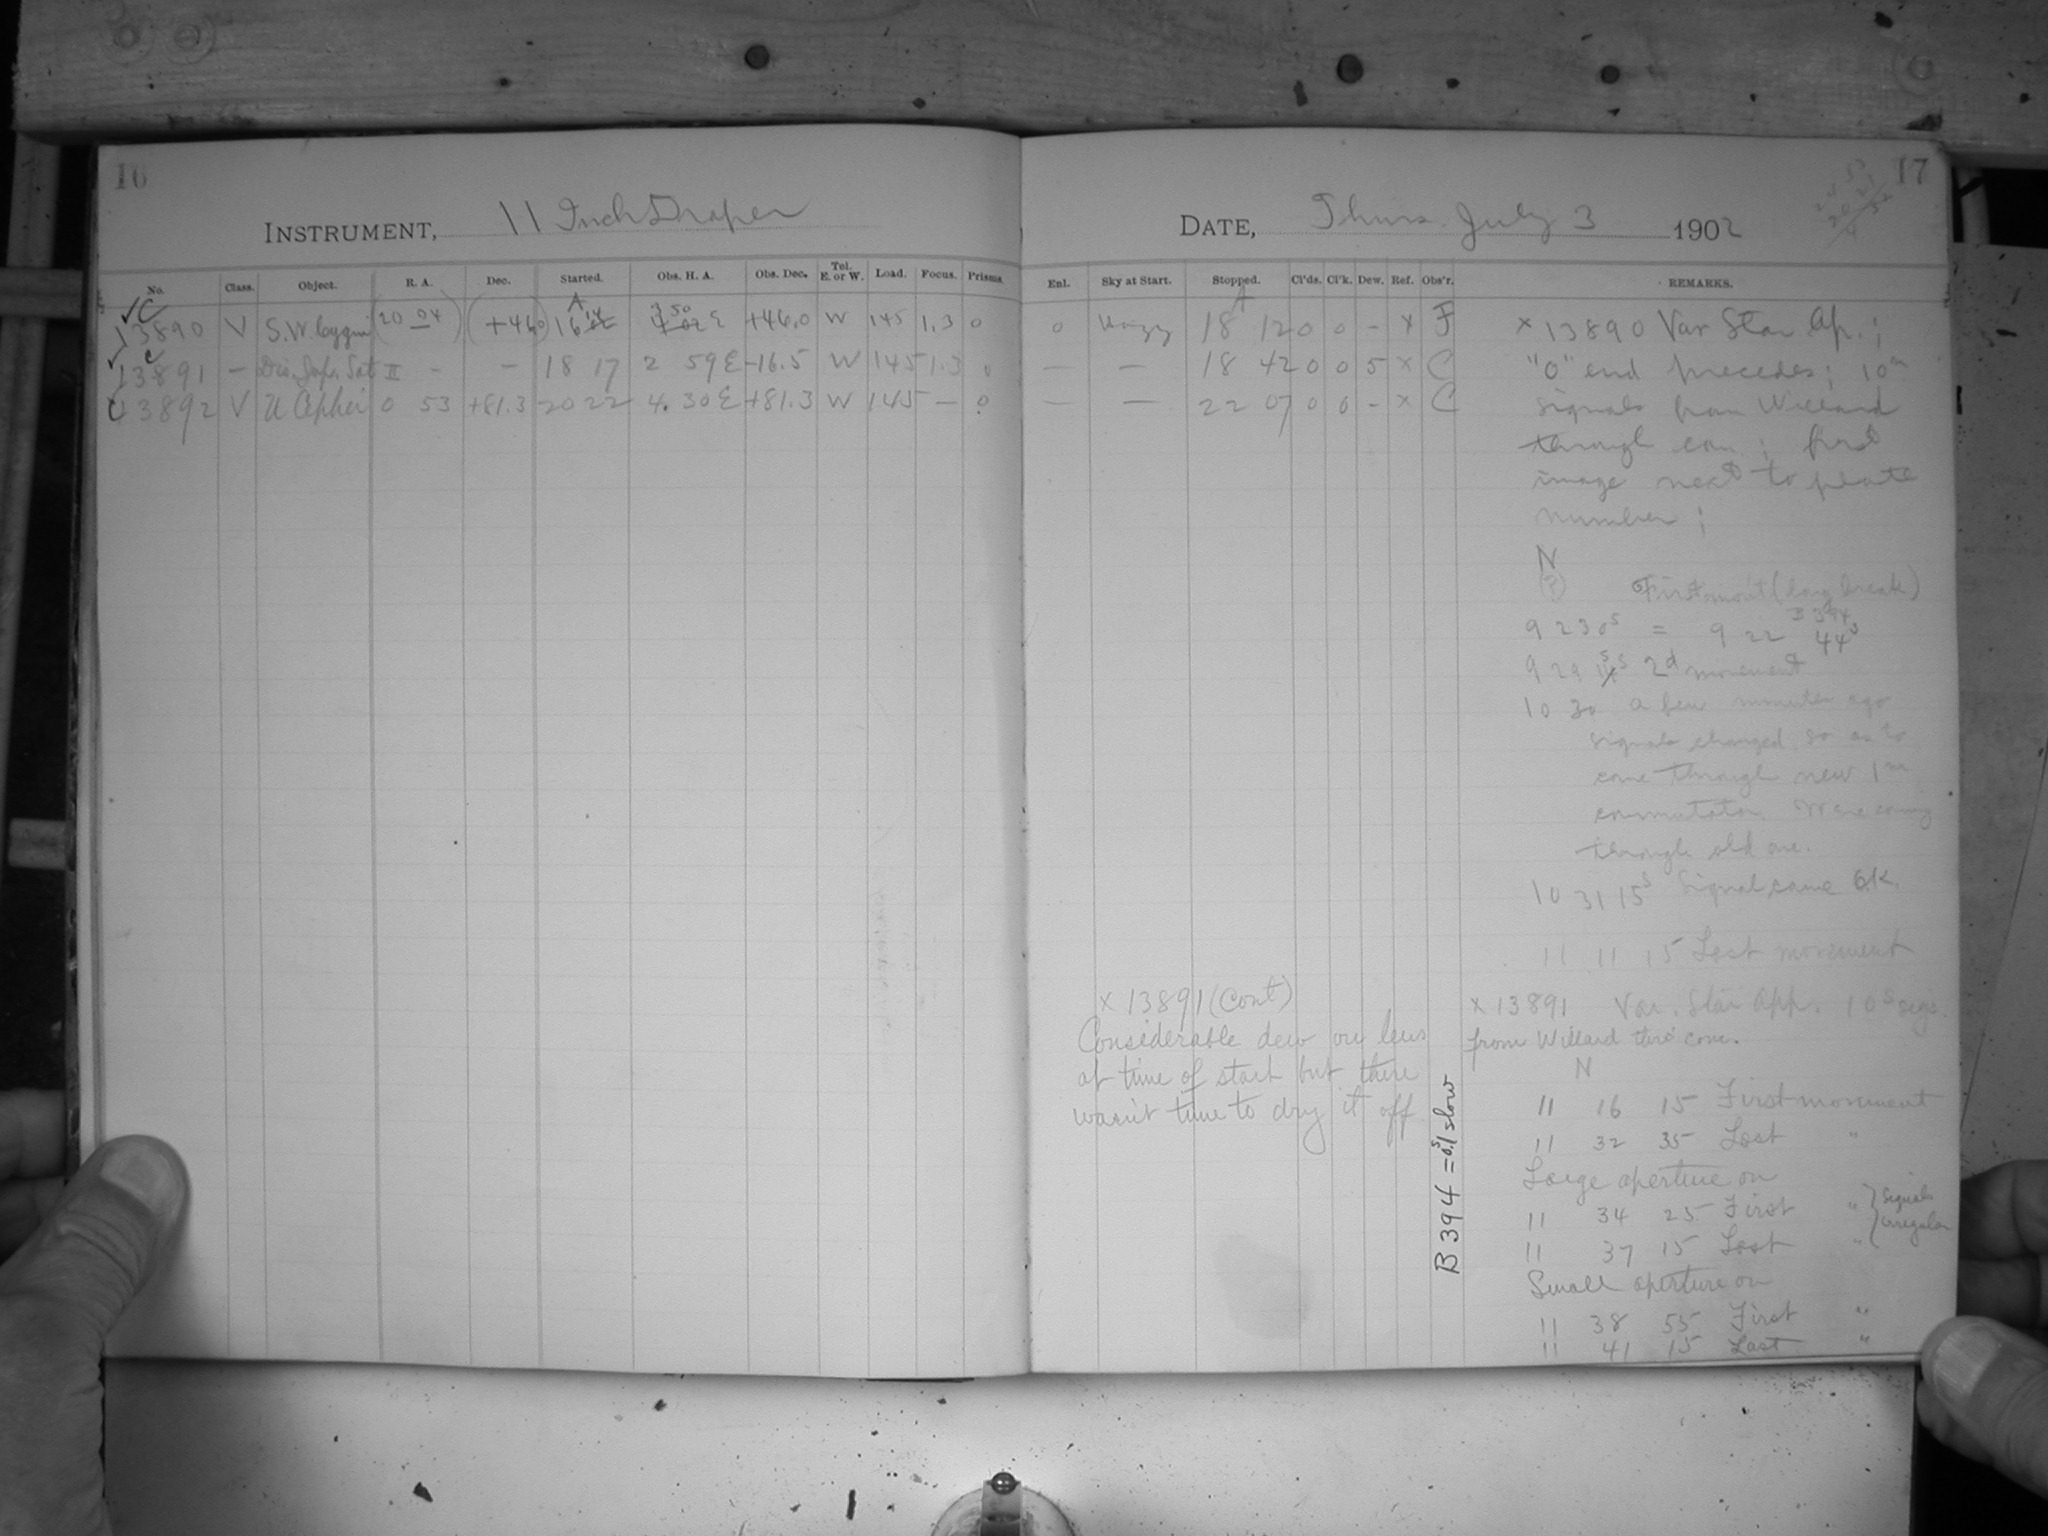 16
INSTRUMENT, 11 Inch Draper
No. Class. Object. R. A. Dec. Started. Obs. H. A. Obs. Dec. Tel. E. or W. Load. Focus. Prisms.
✓C
13890 V S.W. Cygni (20 04) (+46.0) 16 14 3 50 E +46.0 W 145 1.3 0
13891 — Dis. Jup. Sat II - — 18 17 2 59 E -16.5 W 145 1.3 0
13892 V U Cephei 0 53 +81.3 20 22 4. 30 E +81.3 W 145 — 0
17
DATE, Thurs. July 3 1902
Enl. Sky at Start. Stopped. Cl'ds. Cl'k. Dew. Ref. Obs'r. REMARKS.
0 Hazy 18 12 0 0 - x F
— — 18 42 0 0 5 x C
— — 22 07 0 0 - x C
x 13890 Var Star Ap.;
"0" end precedes; 10m
signals from Willard
through com; first
image next to plate
number;
N
First mov't (long break)
B 394
9 23 0s = 9 22 44s
9 29 s 2d movement
10 30 a few minutes ago
signals changed so as to
come through new 1m
commutator. Were coming
through old one.
10 31 15s Signal came O.K.
11 11 15 Last movement
x 13891 (Cont)
Considerable dew on lens
at time of start but there
wasn't time to dry it off
B 394 = 0s.1 slow
x 13891 Var. Star App. 10s sigs.
from Willard thro' com.
N
11 16 15 First movement
11 32 35 Last "
Large aperture on
11 34 25 First "
11 37 15 Last "
} Signals
irregular
Small aperture on
11 38 55 First "
11 41 15 Last "